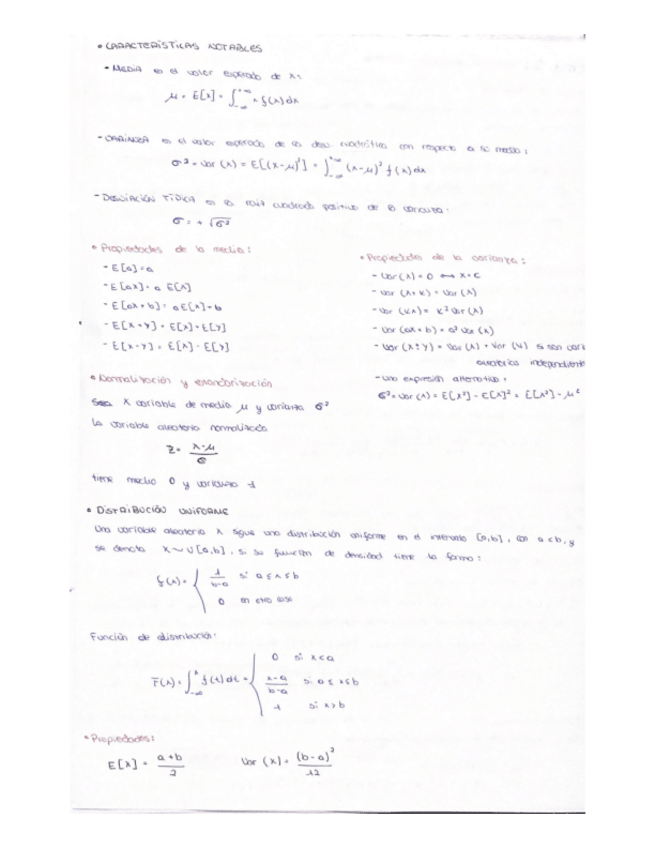 • CARACTERÍSTICAS NOTABLES
- MEDIA es el valor esperado de x:
μ = E[x] = ∫_{-∞}^{+∞} x f(x) dx
- VARIANZA es el valor esperado de la desv. cuadrática con respecto a su media:
σ² = Var (x) = E[(x-μ)²] = ∫_{-∞}^{+∞} (x-μ)² f(x) dx
- DESVIACIÓN TÍPICA es la raíz cuadrada positiva de la varianza.
σ = + √σ²
• Propiedades de la media:
- E[a] = a
- E[ax] = a E[x]
- E[ax + b] = a E[x] + b
- E[x + y] = E[x] + E[y]
- E[x - y] = E[x] - E[y]
• Propiedades de la varianza:
- Var (x) = 0 ⟷ x = c
- Var (x + k) = Var (x)
- Var (kx) = k² Var (x)
- Var (ax + b) = a² Var (x)
- Var (x ± y) = Var (x) + Var (y) si son vari
aleatorias independiente
- una expresión alternativa:
σ² = Var (x) = E[x²] - E[x]² = E[x²] - μ²
• Normalización y estandarización
Sea X variable de media μ y varianza σ²
la variable aleatoria normalizada
z = (x-μ)/σ
tiene media 0 y varianza 1
• DISTRIBUCIÓN UNIFORME
Una variable aleatoria X sigue una distribución uniforme en el intervalo [a,b], con a < b, y
se denota X ~ U[a,b], si su función de densidad tiene la forma:
f(x) = { 1/(b-a) si a ≤ x ≤ b
0 en otro caso
Función de distribución:
F(x) = ∫_{-∞}^{x} f(t) dt = { 0 si x < a
(x-a)/(b-a) si a ≤ x ≤ b
1 si x > b
• Propiedades:
E[x] = (a+b)/2 Var (x) = (b-a)²/12